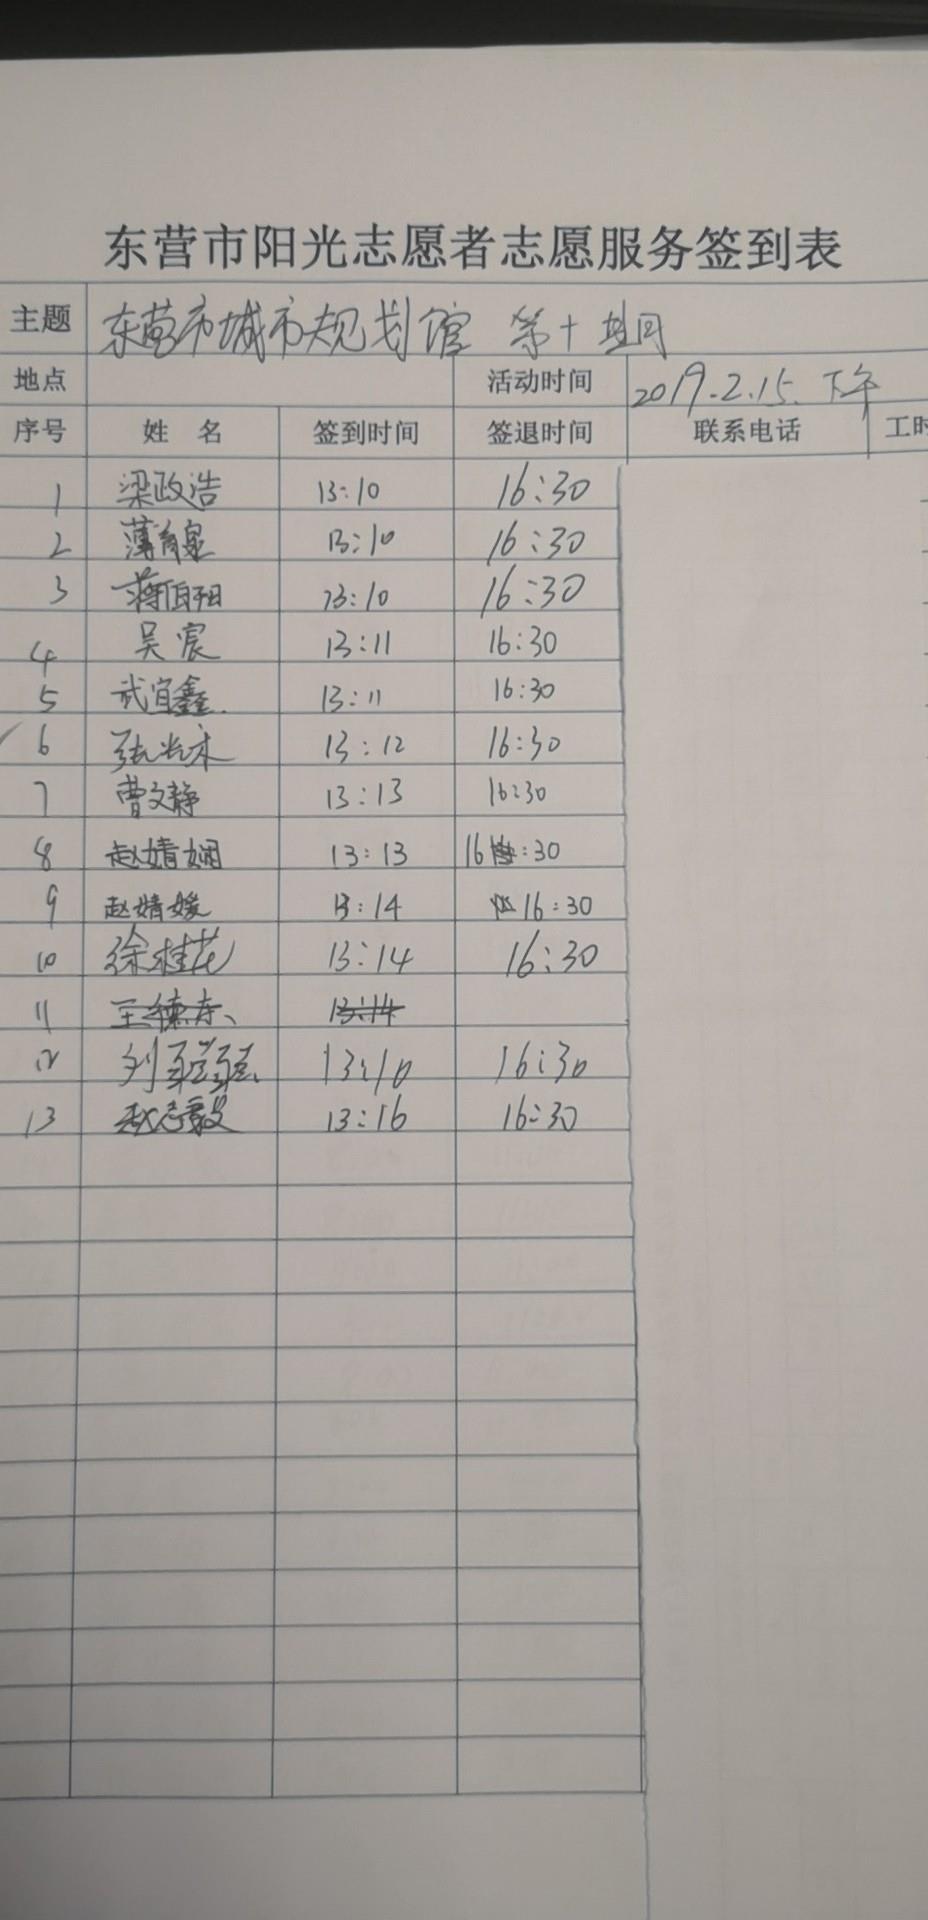 东营市阳光志愿者志愿服务签到表
主题 东营市城市规划馆 第十 周
地点 活动时间 2019.2.15. 下午
序号 姓 名 签到时间 签退时间 联系电话 工时
1 梁政浩 13:10 16:30
2 13:10 16:30
3 蒋佰阳 13:10 16:30
4 吴宸 13:11 16:30
5 武宜鑫. 13:11 16:30
6 张 13:12 16:30
7 曹文静 13:13 16:30
8 赵婧娴 13:13 16:30
9 赵婧媛 13:14 16:30
10 徐桂花 13:14 16:30
11 王德东、 13:14
12 刘 13:10 16:30
13 赵志毅 13:16 16:30